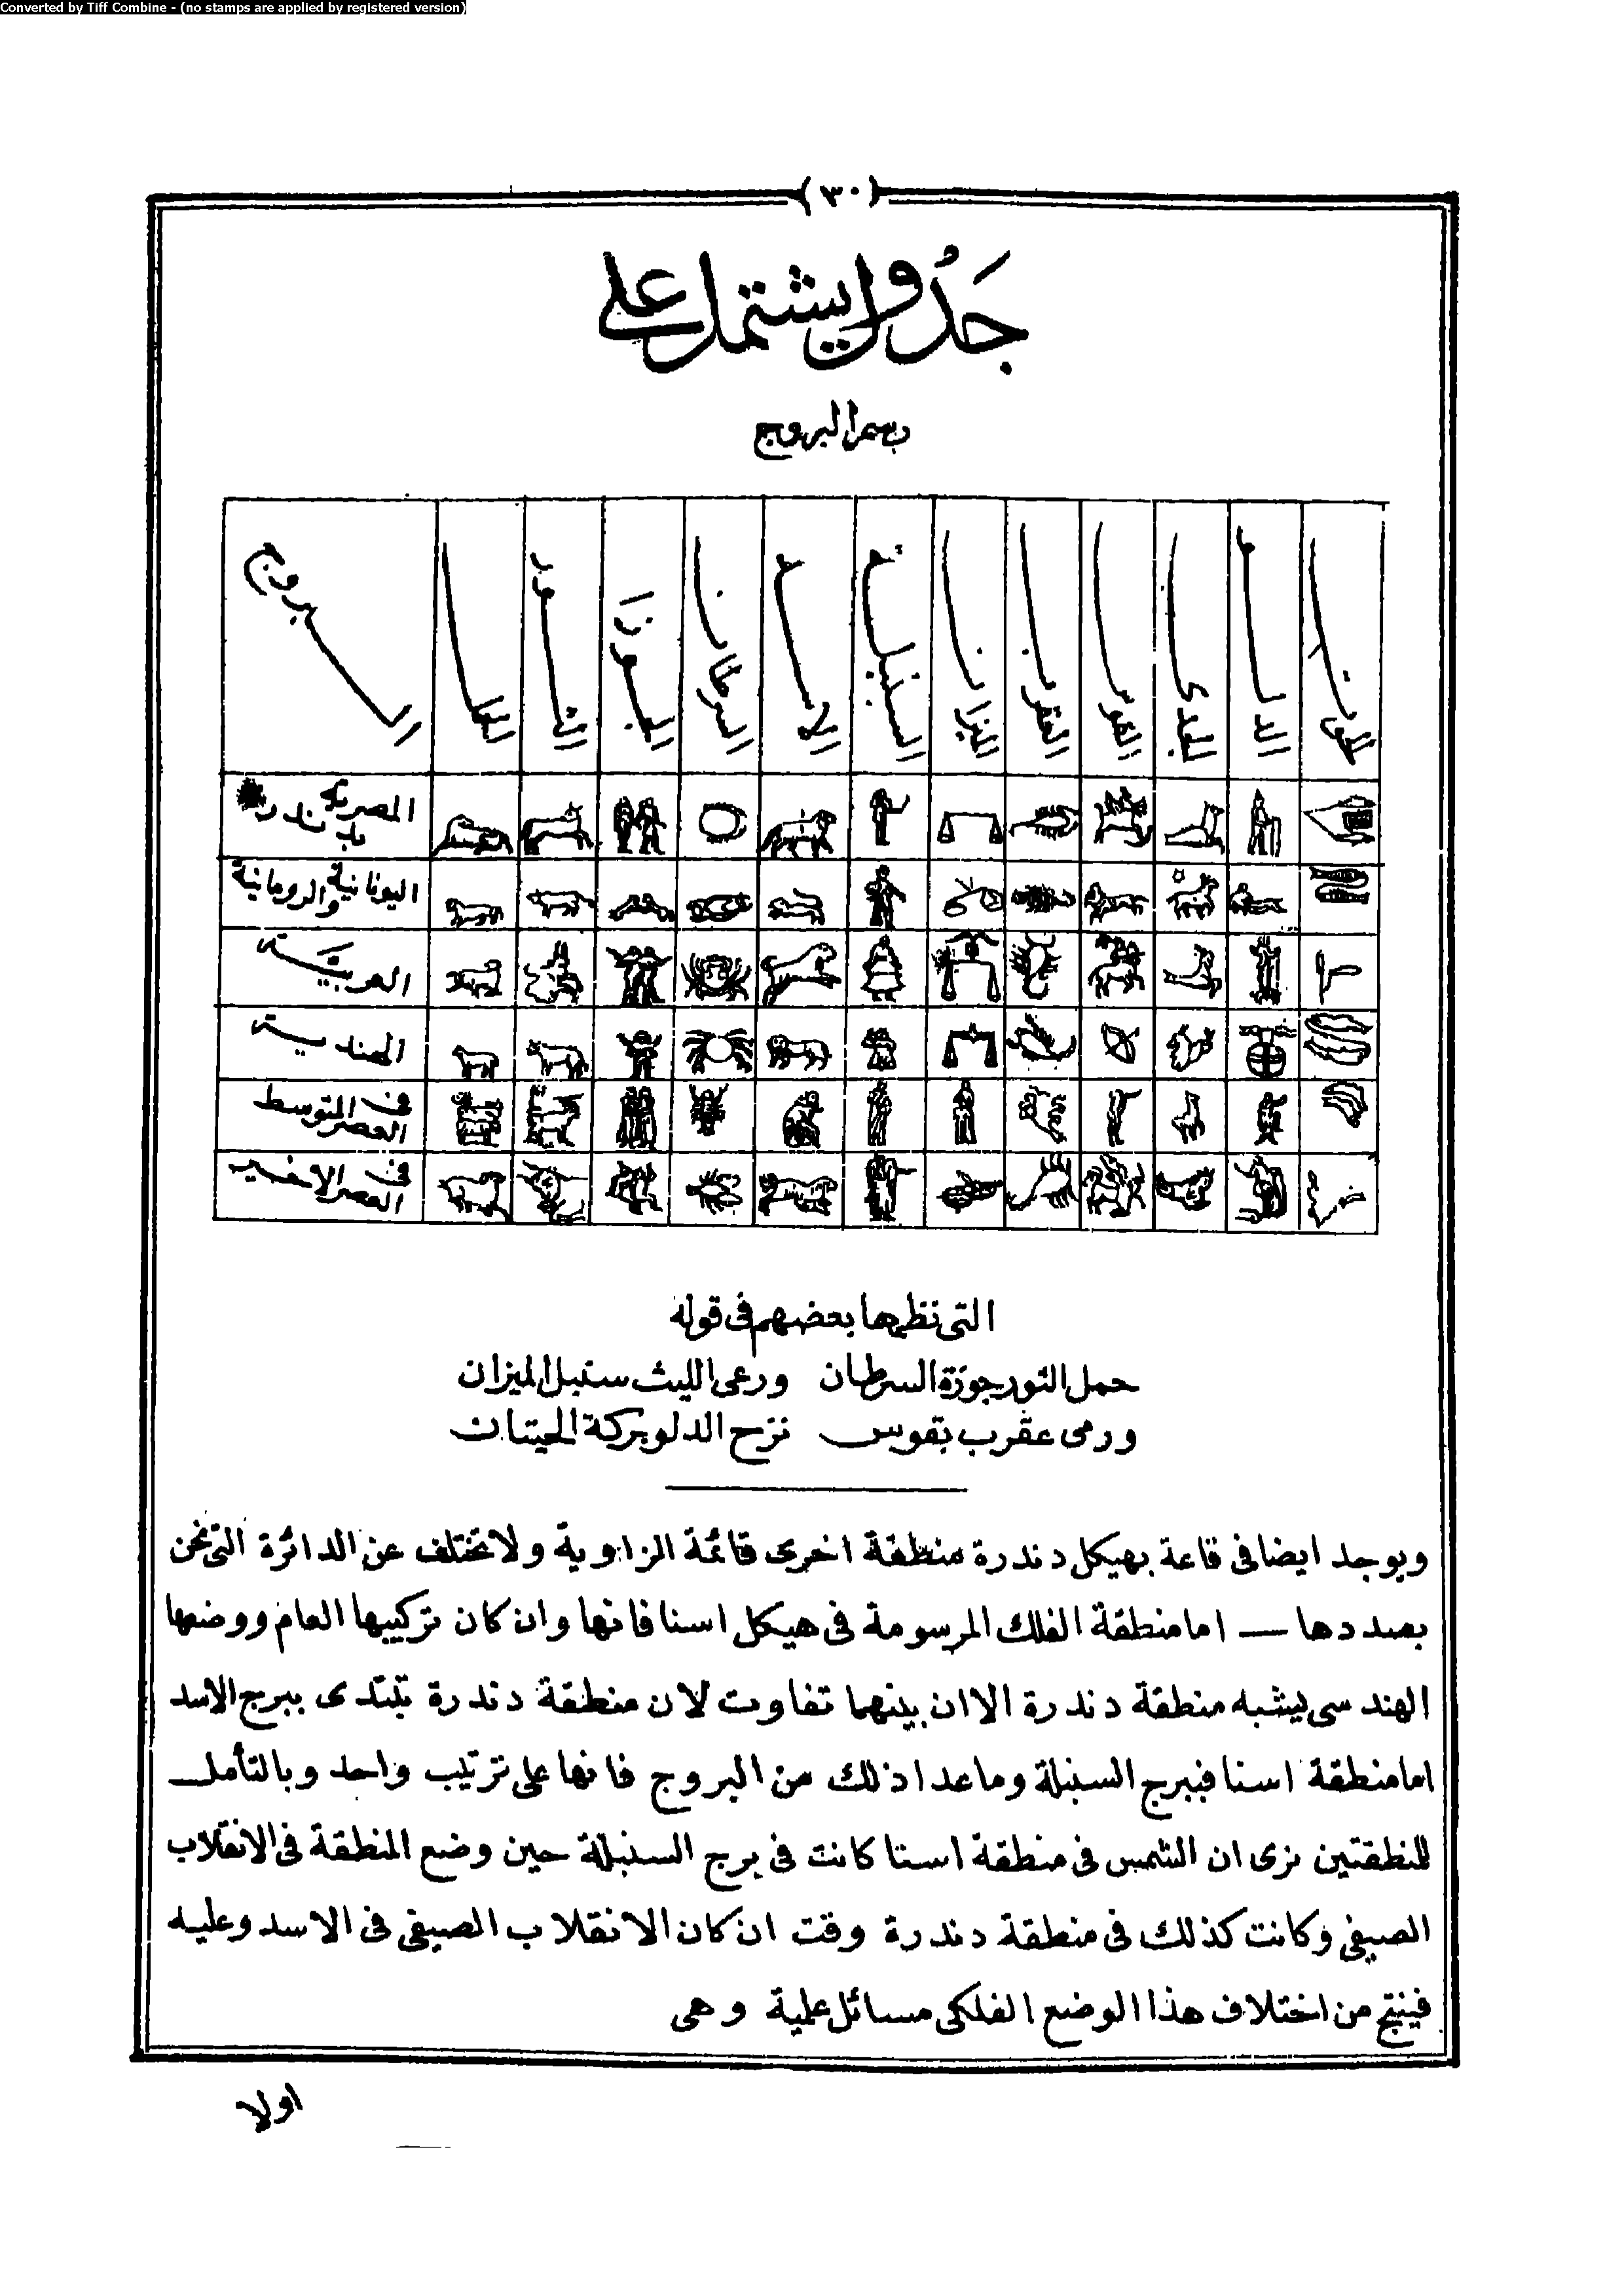 Converted by Tiff Combine - (no stamps are applied by registered version)
(٣٠)
جَدْوَل يشتمل على
رسم البروج
البروج
الحمل
الثور
الجوزا
السرطان
الاسد
السنبلة
الميزان
العقرب
القوس
الجدى
الدلو
الحوت
المصرية بدندرة
اليونانية والرومانية
العربية
الهندية
فى العصر المتوسط
فى العصر الاخير
التى نظمها بعضهم فى قوله
حمل الثور جوزة السرطان ورعى الليث سنبل الميزان
ورمى عقرب بقوس نزح الدلو بركة الحيتان
ويوجد ايضا فى قاعة بهيكل دندرة منطقة اخرى قائمة الزاوية ولا تختلف عن الدائرة التى نحن
بصددها — اما منطقة الفلك المرسومة فى هيكل اسنا فانها وان كان تركيبها العام ووضعها
الهندسى يشبه منطقة دندرة الا ان بينهما تفاوت لان منطقة دندرة تبتدى ببرج الاسد
اما منطقة اسنا فببرج السنبلة وما عدا ذلك من البروج فانها على ترتيب واحد وبالتأمل
للنطقتين نرى ان الشمس فى منطقة اسنا كانت فى برج السنبلة حين وضع المنطقة فى الانقلاب
الصيفى وكانت كذلك فى منطقة دندرة وقت ان كان الانقلاب الصيفى فى الاسد وعليه
فينتج من اختلاف هذا الوضع الفلكى مسائل علمية وهى
اولا